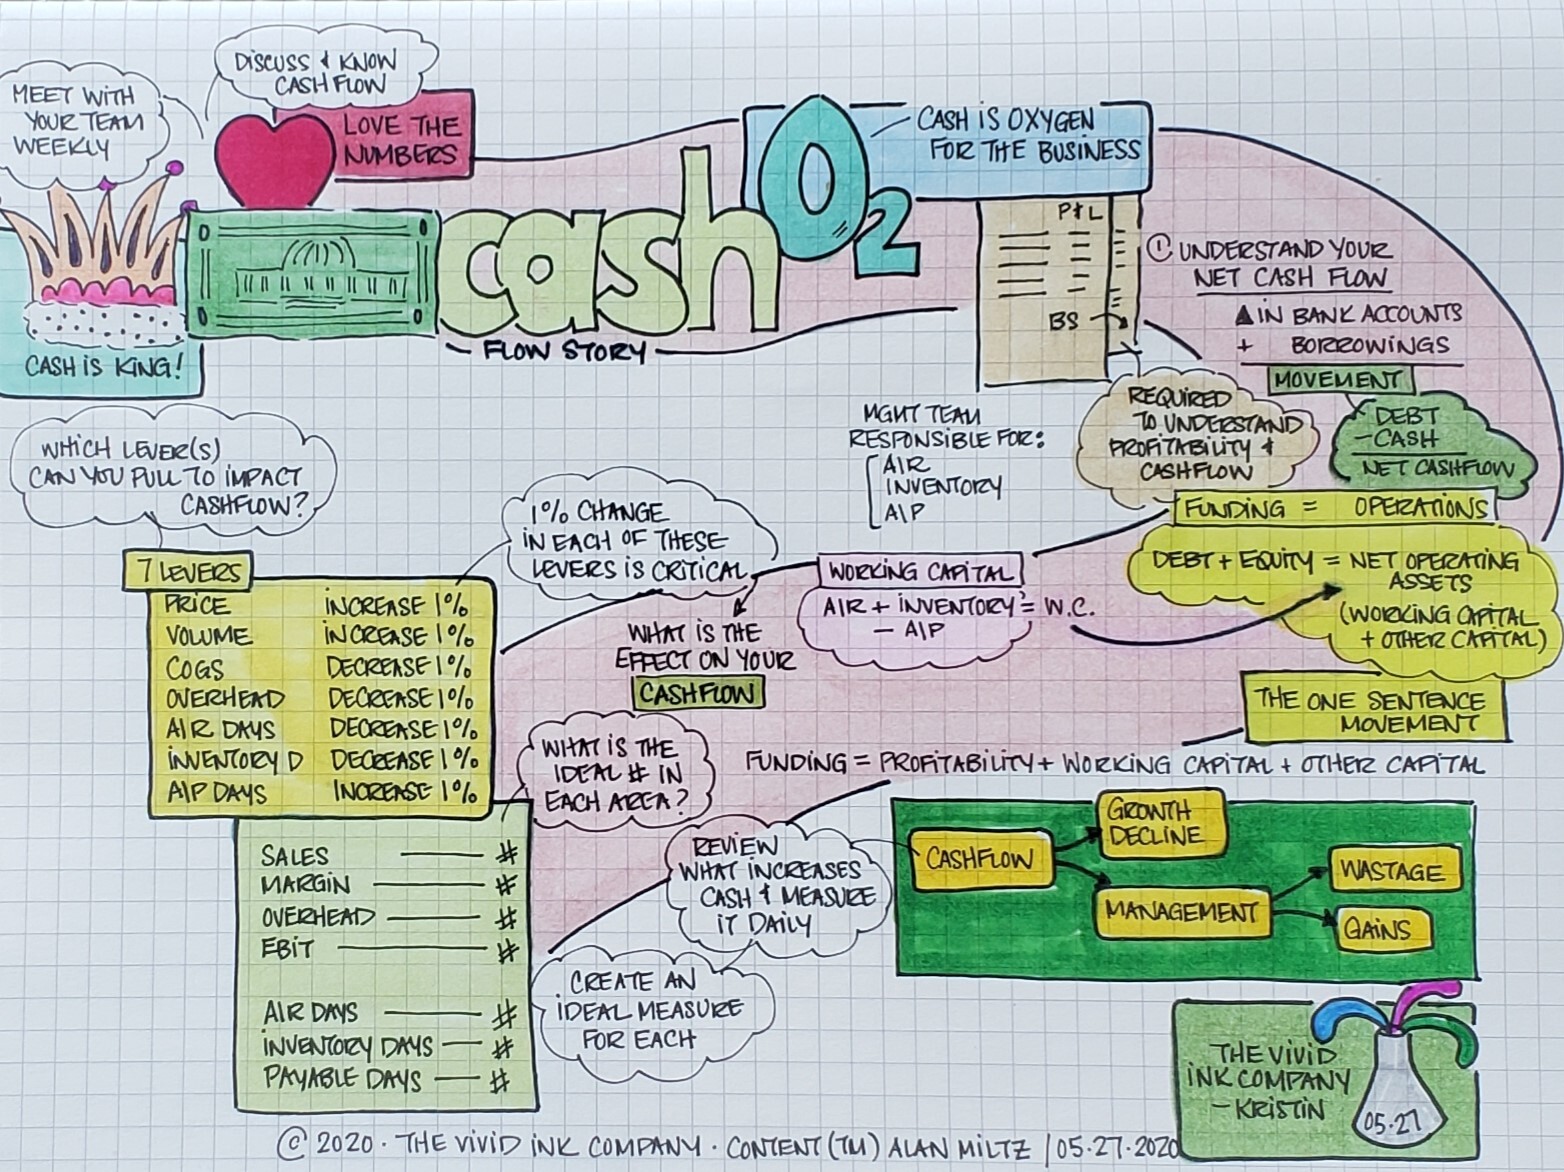 DISCUSS & KNOW
CASHFLOW
MEET WITH
YOUR TEAM
WEEKLY
LOVE THE
NUMBERS
CASH IS KING!
cash O2
FLOW STORY
CASH IS OXYGEN
FOR THE BUSINESS
P&L
BS
① UNDERSTAND YOUR
NET CASH FLOW
▲ IN BANK ACCOUNTS
+ BORROWINGS
MOVEMENT
DEBT
- CASH
NET CASHFLOW
REQUIRED
TO UNDERSTAND
PROFITABILITY &
CASHFLOW
MGMT TEAM
RESPONSIBLE FOR:
A/R
INVENTORY
A/P
FUNDING = OPERATIONS
DEBT + EQUITY = NET OPERATING
ASSETS
(WORKING CAPITAL
+ OTHER CAPITAL)
WORKING CAPITAL
A/R + INVENTORY = W.C.
- A/P
WHICH LEVER(S)
CAN YOU PULL TO IMPACT
CASHFLOW?
1% CHANGE
IN EACH OF THESE
LEVERS IS CRITICAL
WHAT IS THE
EFFECT ON YOUR
CASHFLOW
7 LEVERS
PRICE INCREASE 1%
VOLUME INCREASE 1%
COGS DECREASE 1%
OVERHEAD DECREASE 1%
A/R DAYS DECREASE 1%
INVENTORY D DECREASE 1%
A/P DAYS INCREASE 1%
WHAT IS THE
IDEAL # IN
EACH AREA?
SALES #
MARGIN #
OVERHEAD #
EBIT #
A/R DAYS #
INVENTORY DAYS #
PAYABLE DAYS #
CREATE AN
IDEAL MEASURE
FOR EACH
REVIEW
WHAT INCREASES
CASH & MEASURE
IT DAILY
THE ONE SENTENCE
MOVEMENT
FUNDING = PROFITABILITY + WORKING CAPITAL + OTHER CAPITAL
CASHFLOW
GROWTH
DECLINE
MANAGEMENT
WASTAGE
GAINS
THE VIVID
INK COMPANY
- KRISTIN
05.27
© 2020 · THE VIVID INK COMPANY · CONTENT (TM) ALAN MILTZ | 05.27.2020